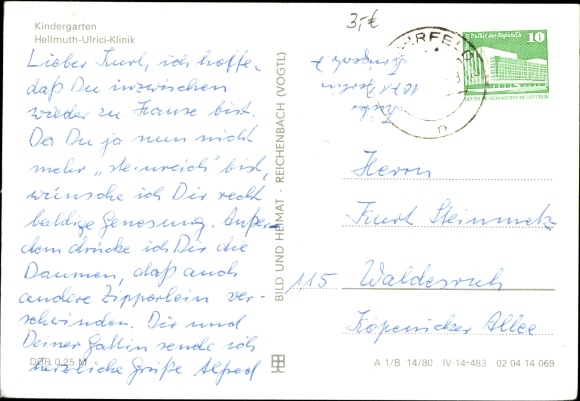 Kindergarten
Hellmuth-Ulrici-Klinik
Lieber Kurt, ich hoffe,
daß Du inzwischen
wieder zu Hause bist.
Da Du ja nun nicht
mehr „steinreich" bist,
wünsche ich Dir recht
baldige Genesung. Außer-
dem drücke ich Dir die
Daumen, daß auch
andere Zipperlein ver-
schwinden. Dir und
Deiner Gattin sende ich
herzliche Grüße Alfred
DDR 0,25 M
BILD UND HEIMAT · REICHENBACH (VOGTL)
3,-€
1071 Berlin
Palast der Republik
10
Herrn
Kurt Steinmetz
115 Waldesruh
Köpenicker Allee
A 1/B 14/80 IV-14-483 02 04 14 069